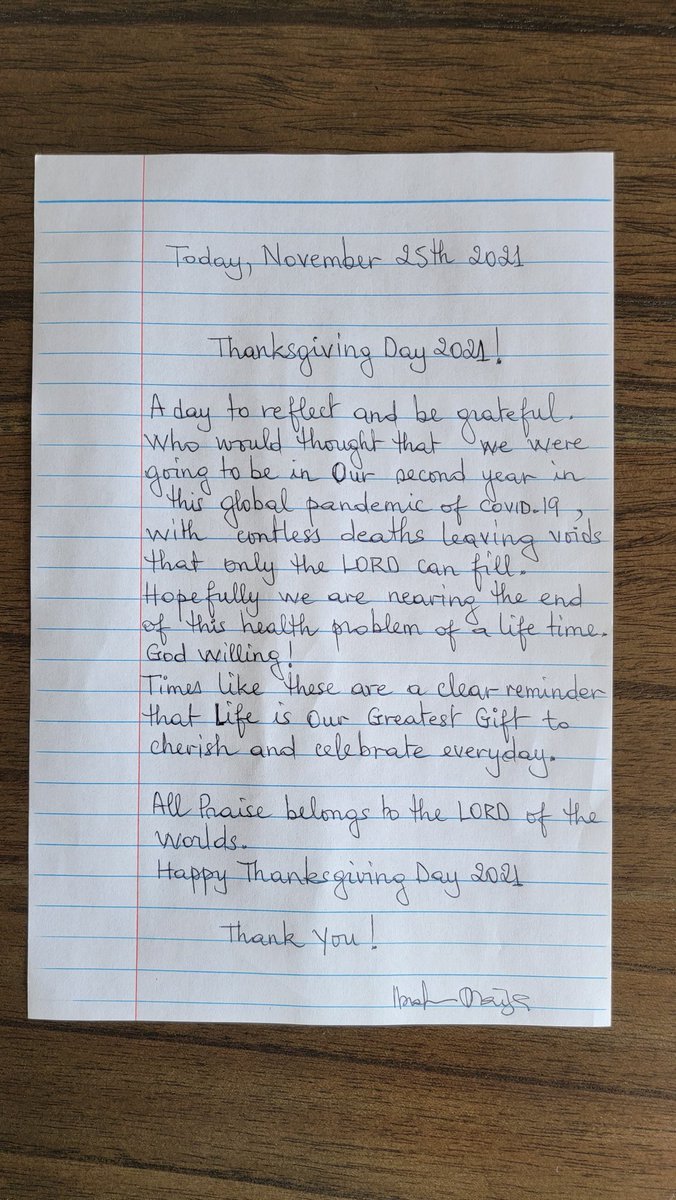 Today, November 25th 2021
Thanksgiving Day 2021!
A day to reflect and be grateful.
Who would thought that we were
going to be in Our second year in
this global pandemic of COVID-19,
with contless deaths leaving voids
that only the LORD can fill.
Hopefully we are nearing the end
of this health problem of a life time.
God willing!
Times like these are a clear reminder
that Life is Our Greatest Gift to
cherish and celebrate everyday.
All Praise belongs to the LORD of the
Worlds.
Happy Thanksgiving Day 2021
Thank You!